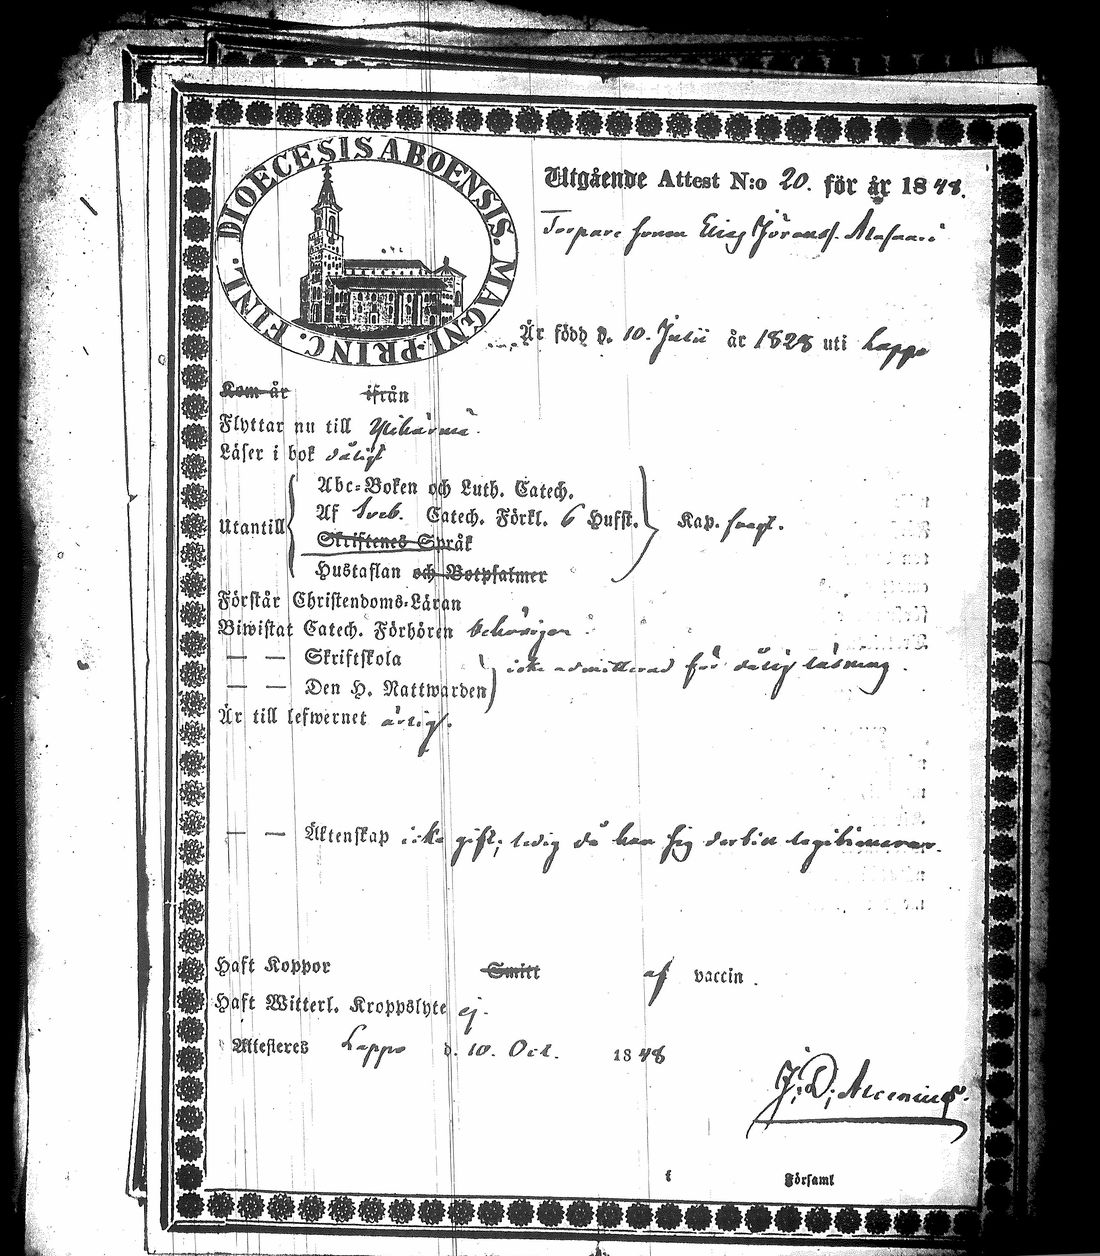 DIOECESIS ABOENSIS. MAGNI-PRINC. FINL.
Utgående Attest N:o 20. för år 1848.
Torpare sonen Elias Jöranss. Alasaari
Är född d. 10. Julii år 1828 uti Lappo
Kom år ifrån
Flyttar nu till Ylihärmä.
Läser i bok dåligt
Abc-Boken och Luth. Catech.
Utantill Af Sveb. Catech. Förkl. 6 Hufst. Kap. svagt.
Skriftenes Språk
Hustaflan och Botpsalmer
Förstår Christendoms-Läran
Biwistat Catech. Förhören behörigen
— — Skriftskola
icke admitterad för dålig läsning.
— — Den H. Nattwarden
Är till lefwernet ärligt.
— — Äktenskap icke gift; ledig då han sig dertill legitimerar.
Haft Koppor Smitt af vaccin.
Haft Witterl. Kroppslyte ej.
Attesteres Lappo d. 10. Oct. 1848
J. D. Alcenius.
i Församl